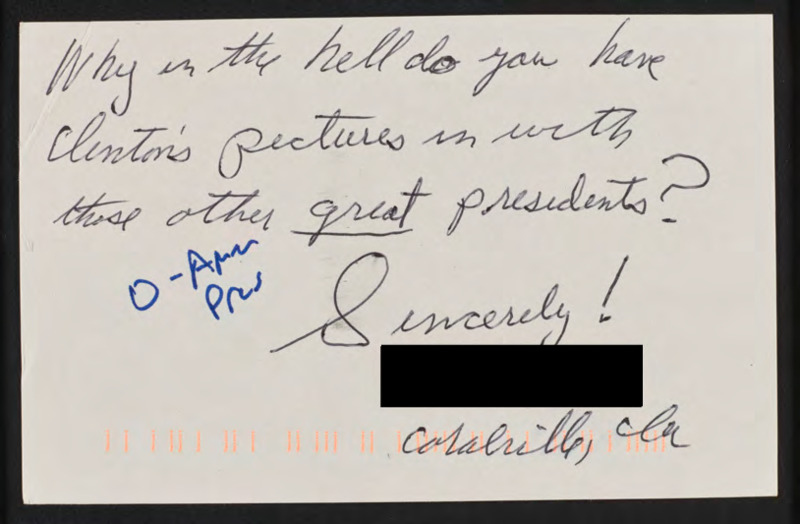 Why in the hell do you have
Clinton's pictures in with
those other great presidents?
O-Amn
Pres
Sincerely!
Coralville, Ia